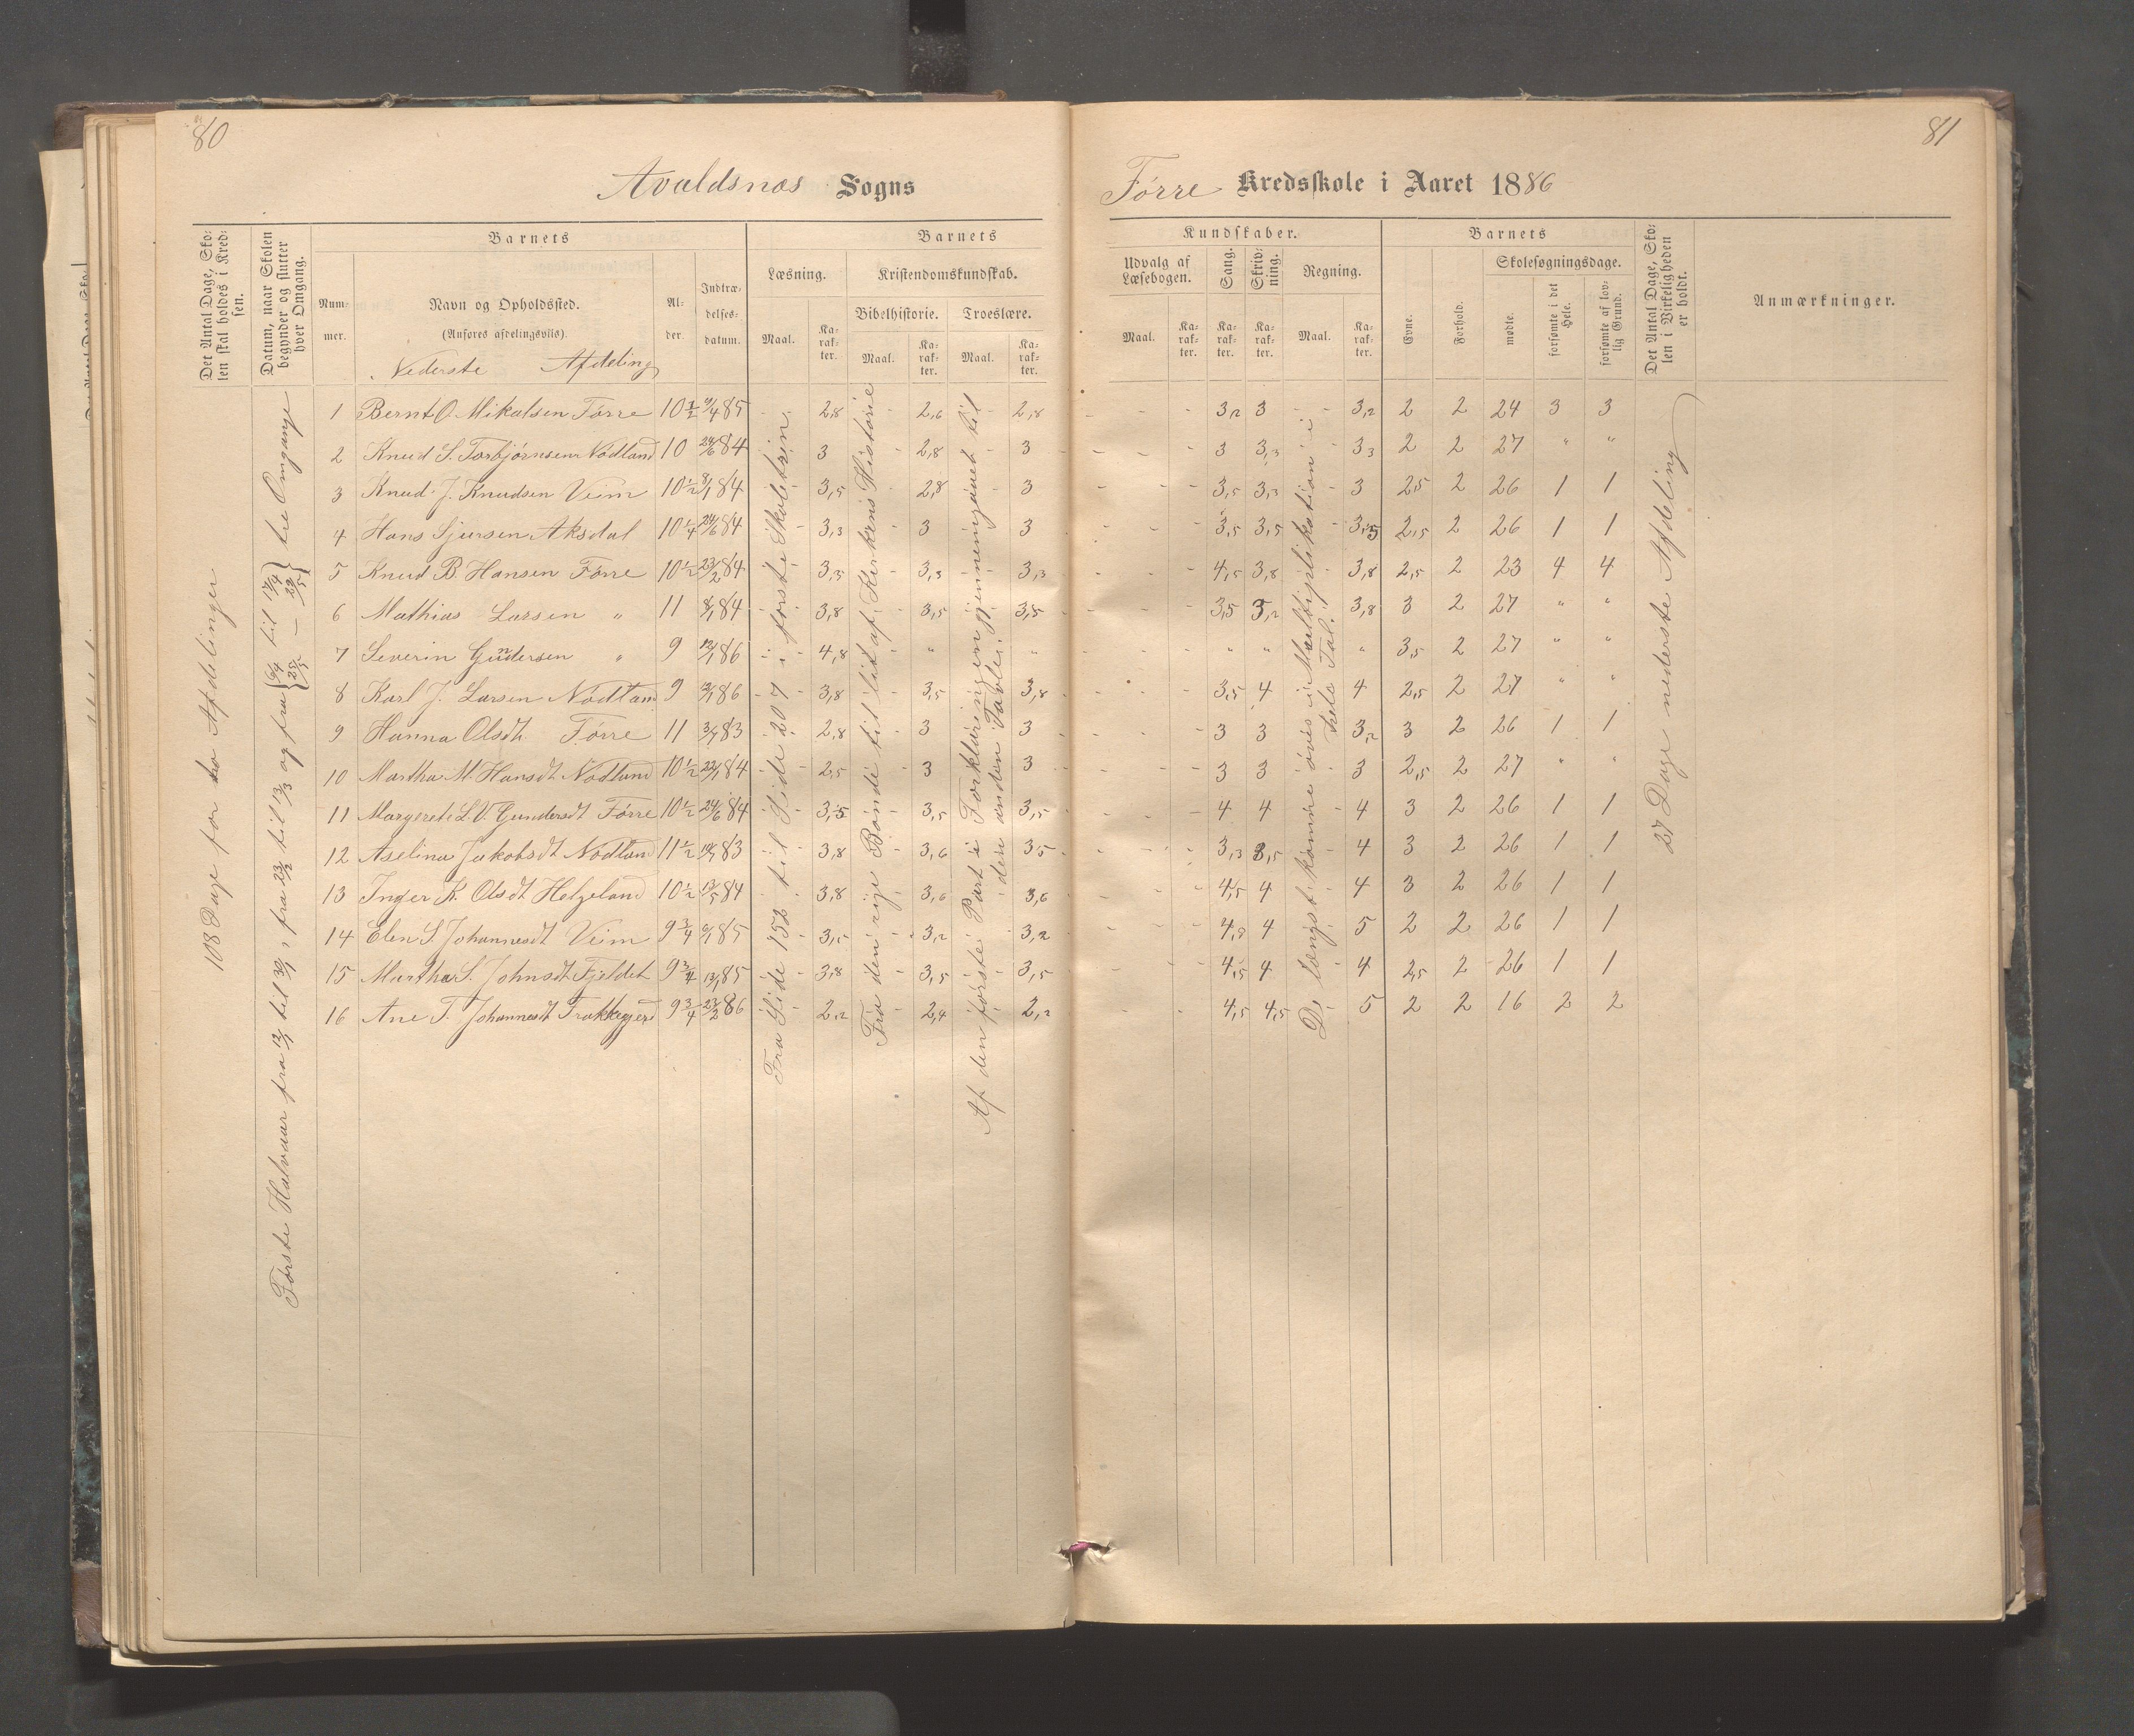 80
Avaldsnæs Sogns
Det Antal Dage, Sko-
len skal holdes i Kred-
sen.
Datum, naar Skolen
begynder og slutter
hver Omgang.
Barnets
Num-
mer.
Navn og Opholdssted.
(Anføres afdelingsviis).
Nederste Afdeling
Al-
der.
Indtræ-
delses-
datum.
Barnets
Læsning.
Maal.
Ka-
rak-
ter.
Kristendomskundskab.
Bibelhistorie.
Maal.
Ka-
rak-
ter.
Troeslære.
Maal.
Ka-
rak-
ter.
108 Dage for to Afdelinger
Første Halvaar fra 12/1 til 30/1, fra 23/2 til 13/3 og fra {6/4 25/5 til 17/4 – 29/5} tre Omgange
Fra Side 152 til Side 207 i første Skoletrin.
Fra den rige Bonde til lidt af Kirkens Historie
Af den første Part i Forklaringen gjennemgaaet til
den anden Tavle.
1 Bernt O. Mikalsen Førre 10 1/2 9/4 85 2,8 2,6 2,8
2 Knud S. Torbjørnsen Nodland 10 24/6 84 3 2,8 3
3 Knud J. Knudsen Veim 10 1/2 8/1 84 3,5 2,8 3
4 Hans Sjursen Aksdal 10 1/4 24/6 84 3,3 3 3
5 Knud B. Hansen Førre 10 1/2 23/2 84 3,3 3,3 3,3
6 Mathias Larsen " 11 8/1 84 3,8 3,5 3,5
7 Severin Gundersen " 9 12/1 86 4,8 " "
8 Karl J. Larsen Nodland 9 12/1 86 3,8 3,5 3,8
9 Hanna Olsdt. Førre 11 3/7 83 2,8 3 3
10 Martha M. Hansdt Nodland 10 1/2 22/1 84 2,5 3 3
11 Margrete L. V. Gundersdt Førre 10 1/2 24/6 84 3,5 3,5 3,5
12 Aselina Jakobsdt Nodland 11 1/2 19/7 83 3,8 3,6 3,5
13 Inger K. Olsdt Helgeland 10 1/2 13/5 84 3,8 3,6 3,6
14 Elen S. Johannesdt Veim 9 3/4 9/1 85 3,5 3,2 3,2
15 Martha S. Johnsdt Fjeldet 9 3/4 13/1 85 3,8 3,5 3,5
16 Ane T. Johannesdt 9 3/4 23/2 86 2,2 2,4 2,2
81
Førre Kredsskole i Aaret 1886
Kundskaber.
Udvalg af
Læsebogen.
Maal.
Ka-
rak-
ter.
Sang.
Ka-
rak-
ter.
Skriv-
ning.
Ka-
rak-
ter.
Regning.
Maal.
Ka-
rak-
ter.
Barnets
Evne.
Forhold.
Skolesøgningsdage.
mødte.
forsømte i det
Hele.
forsømte af lov-
lig Grund.
Det Antal Dage, Sko-
len i Virkeligheden
er holdt.
Anmærkninger.
De længst komne øves i Multiplikation i
hele Tal.
27 Dage nederste Afdeling
3,2 3 3,2 2 2 24 3 3
3 3,3 3,3 2 2 27 " "
3,5 3,3 3 2,5 2 26 1 1
3,5 3,5 3,5 2,5 2 26 1 1
4,5 3,8 3,8 2,5 2 23 4 4
3,5 3,2 3,8 3 2 27 " "
" " " 3,5 2 27 " "
3,5 4 4 2,5 2 27 " "
3 3 3,2 3 2 26 1 1
3 3 3 2,5 2 27 " "
4 4 4 3 2 26 1 1
3,3 3,5 4 3 2 26 1 1
4,5 4 4 3 2 26 1 1
4,8 4 5 2 2 26 1 1
4,5 4 4 2,5 2 26 1 1
4,5 4,5 5 2 2 16 2 2